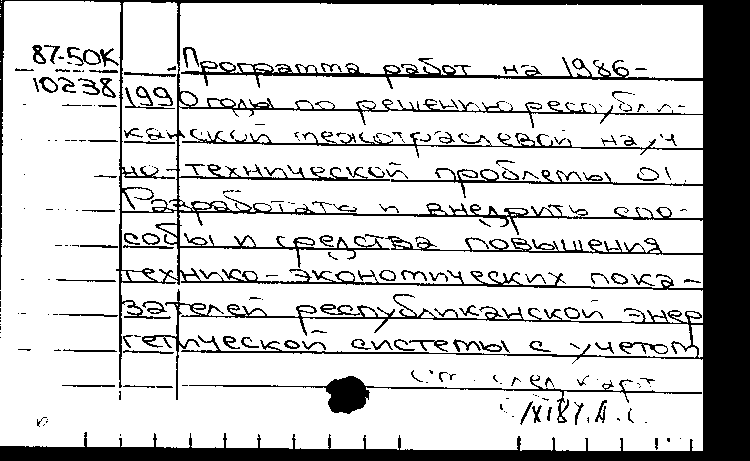 87-50К
10238
Программа работ на 1986-
1990 годы по решению республи-
канской межотраслевой науч
но-технической проблемы 01.
Разработать и внедрить спо-
собы и средства повышения
технико-экономических пока-
зателей республиканской энер
гетической системы с учетом
См. след. карт